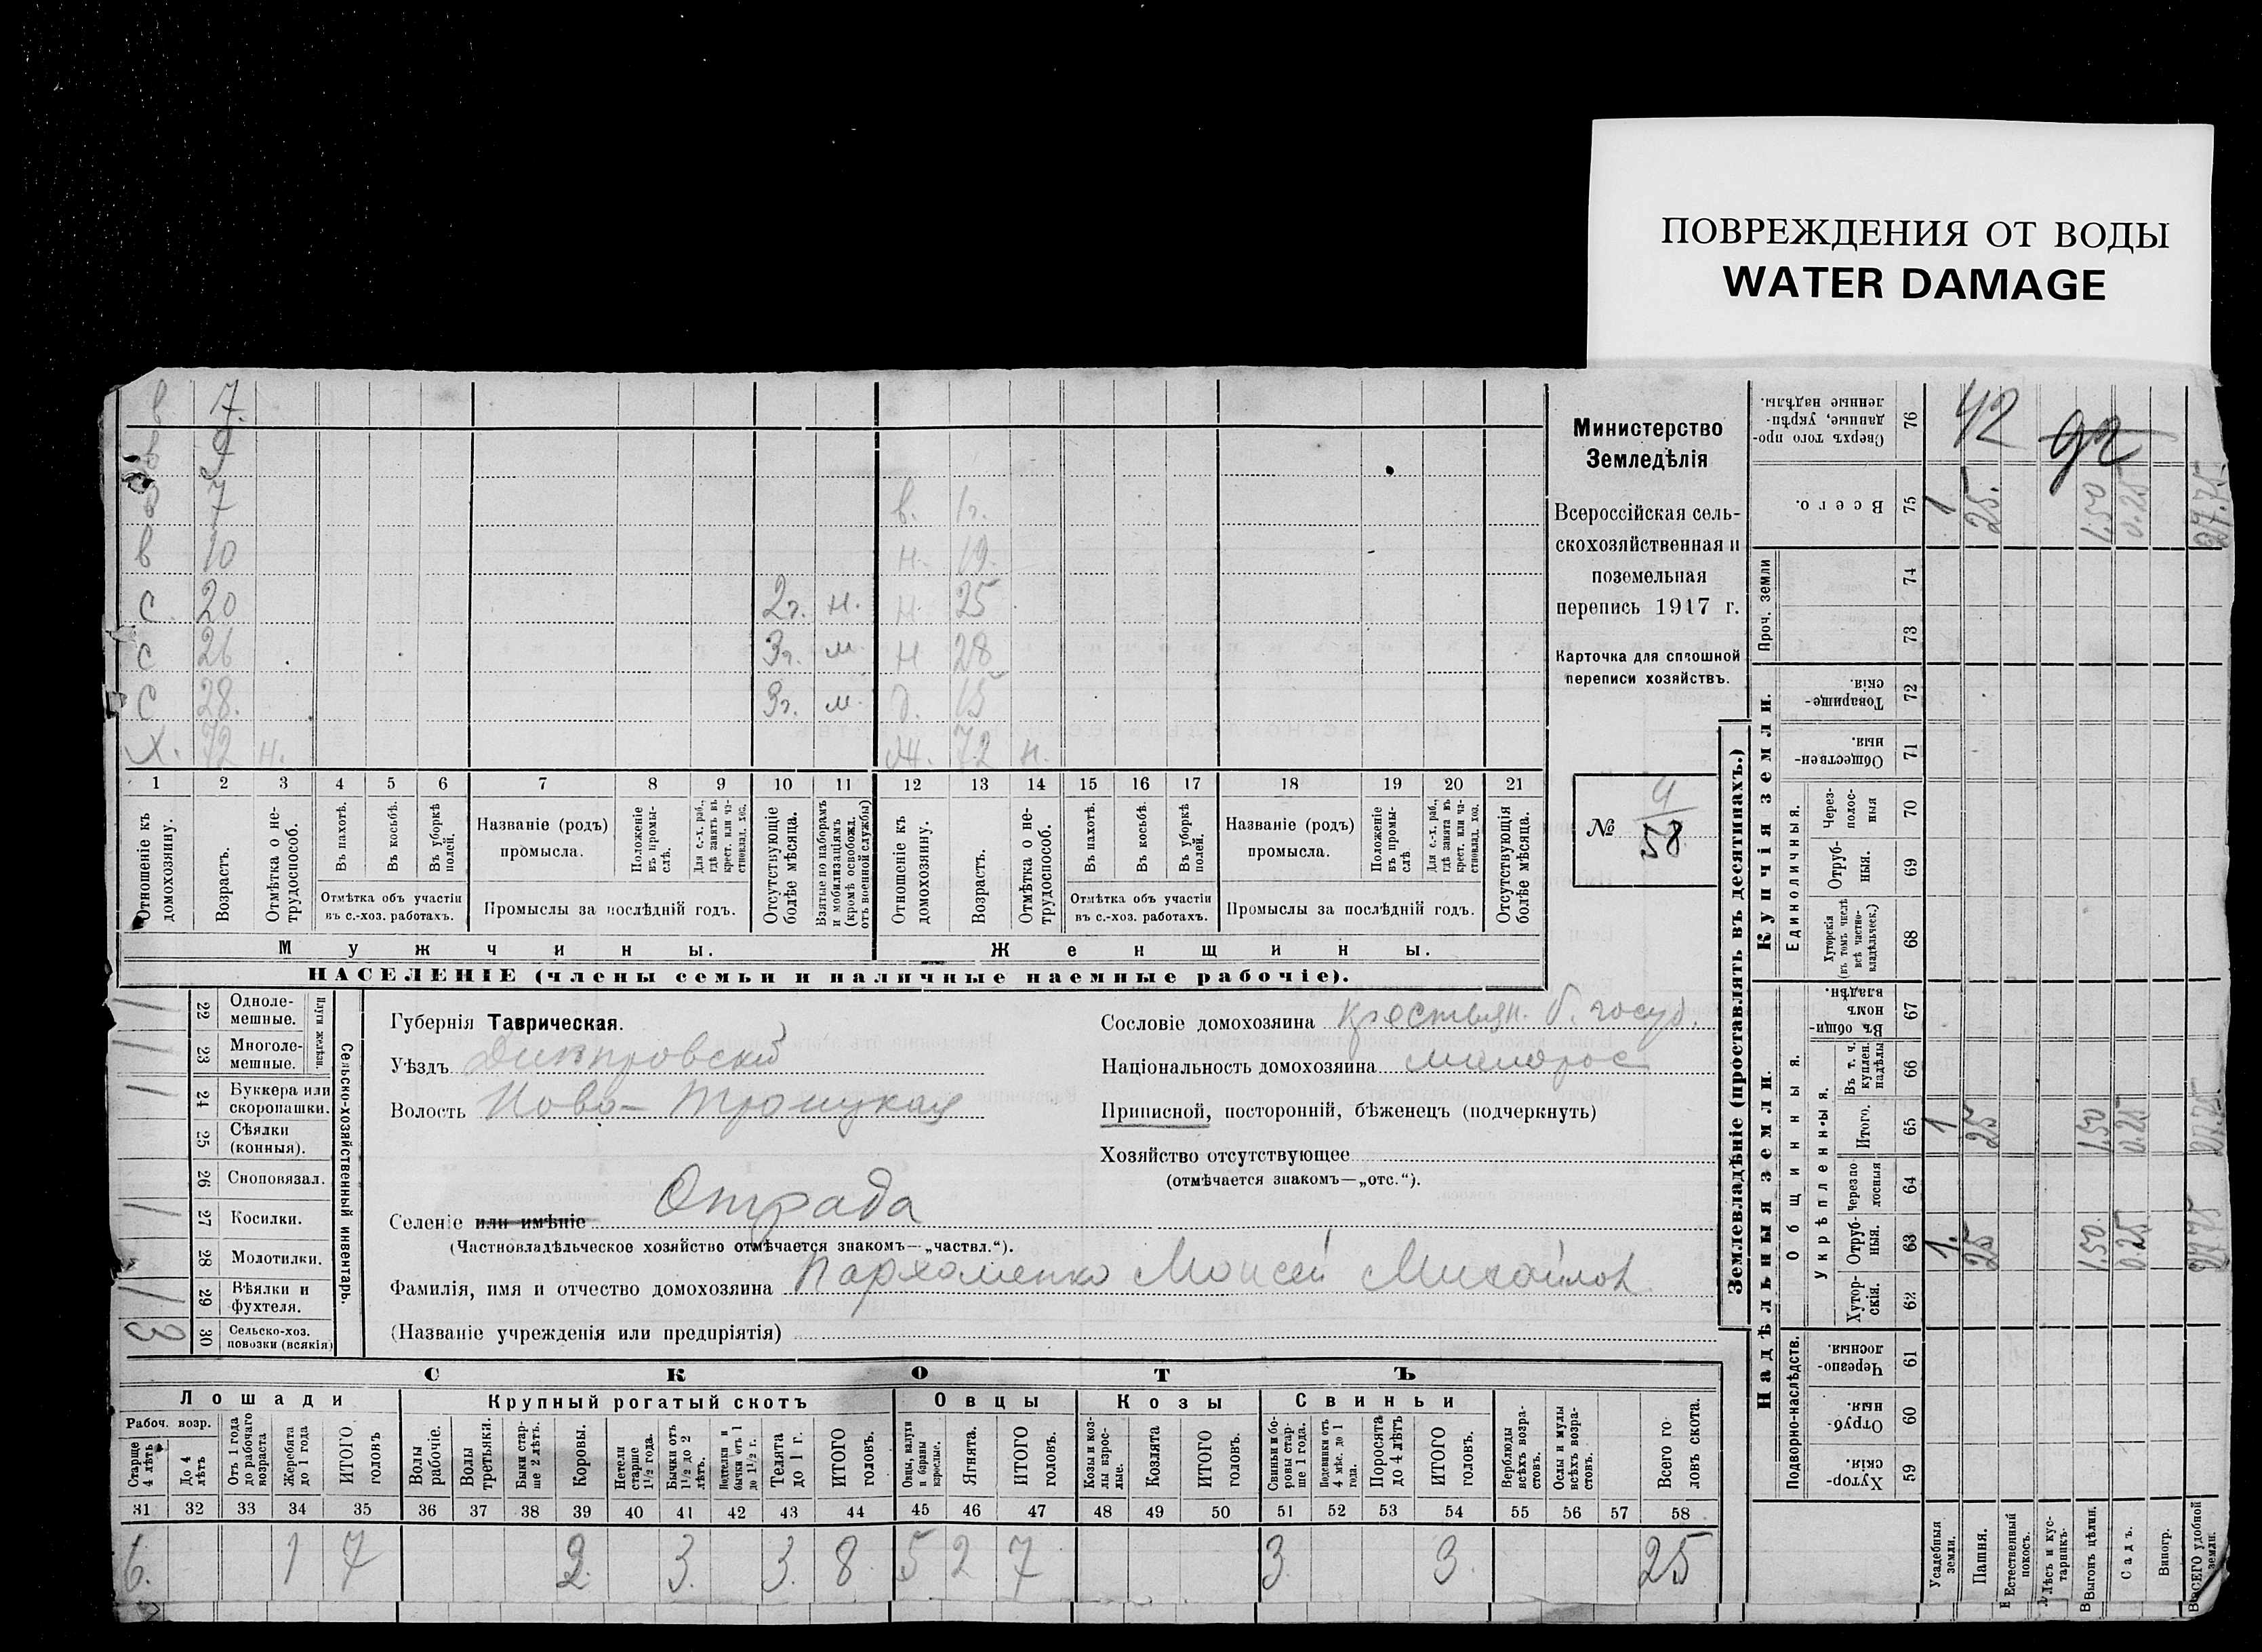 ПОВРЕЖДЕНИЯ ОТ ВОДЫ
WATER DAMAGE
в 7.
в 9
в 7 в. 1г.
в 10 н. 19.
с 20 2г. н. н. 25
с 26 3г. м н 28
с 28. 3г. м. д. 15
х. 72 н. ж. 72 н.
1 2 3 4 5 6 7 8 9 10 11 12 13 14 15 16 17 18 19 20 21
Отношеніе къ домохозяину.
Возрастъ.
Отмѣтка о не-трудоспособ.
Въ пахотѣ.
Въ косьбѣ.
Въ уборкѣ полей.
Отмѣтка объ участіи въ с.-хоз. работахъ.
Названіе (родъ) промысла.
Положеніе въ промы-слѣ.
Для с.-х. раб., гдѣ занять въ крест. или ча-стновлад. хоз.
Промыслы за послѣдній годъ.
Отсутствующіе болѣе мѣсяца.
Взятые по наборамъ и мобилизаціямъ (кромѣ освобожд. отъ военной службы)
Отношеніе къ домохозяину.
Возрастъ.
Отмѣтка о не-трудоспособ.
Въ пахотѣ.
Въ косьбѣ.
Въ уборкѣ полей.
Отмѣтка объ участіи въ с.-хоз. работахъ.
Названіе (родъ) промысла.
Положеніе въ промы-слѣ
Для с.-х. раб., гдѣ занята въ крест. или ча-стновлад. хоз.
Промыслы за послѣдній годъ.
Отсутствующія болѣе мѣсяца.
Мужчины. Женщины.
НАСЕЛЕНІЕ (члены семьи и наличные наемные рабочіе).
Министерство
Земледѣлія
Всероссійская сель-
скохозяйственная и
поземельная
перепись 1917 г.
Карточка для сплошной
переписи хозяйствъ.
№ 58
1 22 Одноле-мешные.
1 23 Многоле-мешные.
Плуги желѣзн.
1 24 Буккера или скоропашки.
25 Сѣялки (конныя).
26 Сноповязал.
1 27 Косилки.
28 Молотилки.
1 29 Вѣялки и фухтеля.
3 30 Сельско-хоз. повозки (всякія)
Сельско-хозяйственный инвентарь.
Губернія Таврическая.
Уѣздъ Днѣпровскій
Волость Ново-Троицкая
Селеніе или имѣніе Отрада
(Частновладѣльческое хозяйство отмѣчается знакомъ—„частвл.“).
Фамилія, имя и отчество домохозяина Пархоменко Моисей Михайлов
(Названіе учрежденія или предпріятія)
Сословіе домохозяина крестьян. б. госуд.
Національность домохозяина малорос
Приписной, посторонній, бѣженецъ (подчеркнуть)
Хозяйство отсутствующее
(отмѣчается знакомъ—„отс.“).
СКОТЪ
Лошади Крупный рогатый скотъ Овцы Козы Свиньи
Рабоч. возр.
Старше 4 лѣтъ
До 4 лѣтъ
Отъ 1 года до рабочаго возраста
Жеребята до 1 года
ИТОГО головъ
Волы рабочіе.
Волы третьяки.
Быки стар-ше 2 лѣтъ.
Коровы.
Нетели старше 1½ года.
Бычки отъ 1½ до 2 лѣтъ.
Подтелки и бычки отъ 1 до 1½ г.
Телята до 1 г.
ИТОГО головъ.
Овцы, валухи и бараны взрослые.
Ягнята.
ИТОГО головъ.
Козы и коз-лы взрос-лые.
Козлята
ИТОГО головъ.
Свиньи и бо-ровы стар-ше 1 года.
Подсвинки отъ 4 мѣс. до 1 года.
Поросята до 4 лѣтъ
ИТОГО головъ.
Верблюды всѣхъ возра-стовъ.
Ослы и мулы всѣхъ возра-стовъ.
Всего го-ловъ скота.
31 32 33 34 35 36 37 38 39 40 41 42 43 44 45 46 47 48 49 50 51 52 53 54 55 56 57 58
6. 1 7 2. 3. 3. 8. 5 2 7 3. 3. 25
Землевладѣніе (проставлять въ десятинахъ.)
Надѣльныя земли. Купчія земли. Проч. земли
Подворно-наслѣдств.
Общинныя.
Укрѣпленныя.
Единоличныя.
Хутор-скія. 59
Отруб-ныя. 60
Черезпо-лосныя. 61
Хутор-скія. 62
Отруб-ныя. 63 1. 25 1.50. 0.25 27.75
черезпо лосныя 64
Итого. 65 1 25 1.50 0.25 27.75
Въ т. ч. куплен. надѣлы 66
Въ общи-номъ владѣн. 67
Хуторскія (въ томъ числѣ всѣ частно-владѣльческ.) 68
Отруб-ныя. 69
Через-полос-ныя 70
Обществен-ныя. 71
Товарище-скія. 72
73
74
Всего. 75 1 25. 1.50 0.25 27.75
Сверхъ того про-данные, укрѣп-ленные надѣлы. 76 42
Усадебныя земли.
Пашня.
Естественный покосъ.
Лѣсъ и кус-тарникъ.
Выгонъ цѣлин.
Садъ.
Виногр.
ВСЕГО удобной земли.